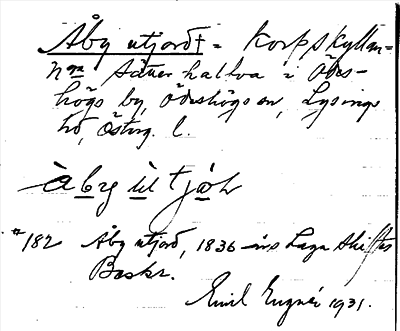 Åby utjord = Korpskyttan=
n sätter hallva i Ödes-
högs by, Ödeshögs sn, Lysings
hd, Österg. l.
àbrg ùt tjoh
*182 Åby utjord, 1836 års Laga Skiftes
Beskr.
Emil 1931.